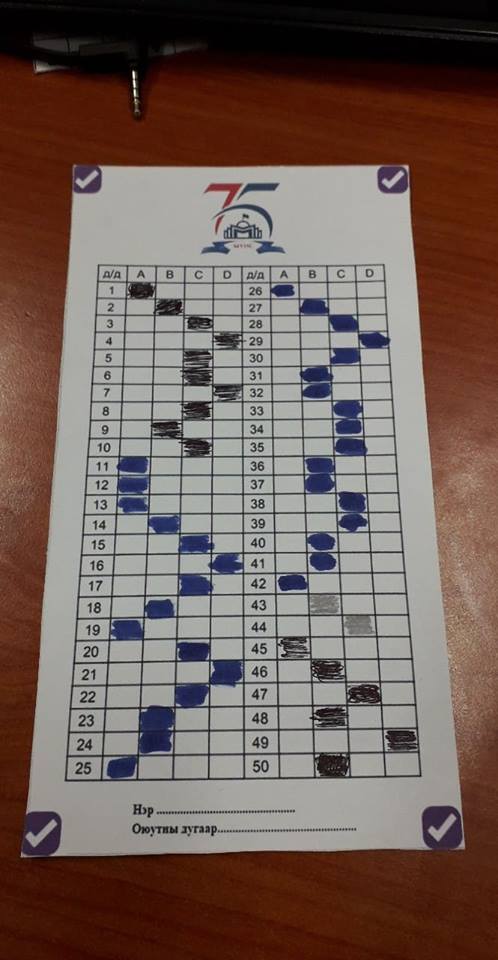 75
МУИС
д/д A B C D д/д A B C D
1 26
2 27
3 28
4 29
5 30
6 31
7 32
8 33
9 34
10 35
11 36
12 37
13 38
14 39
15 40
16 41
17 42
18 43
19 44
20 45
21 46
22 47
23 48
24 49
25 50
Нэр ..................................................
Оюутны дугаар..................................................